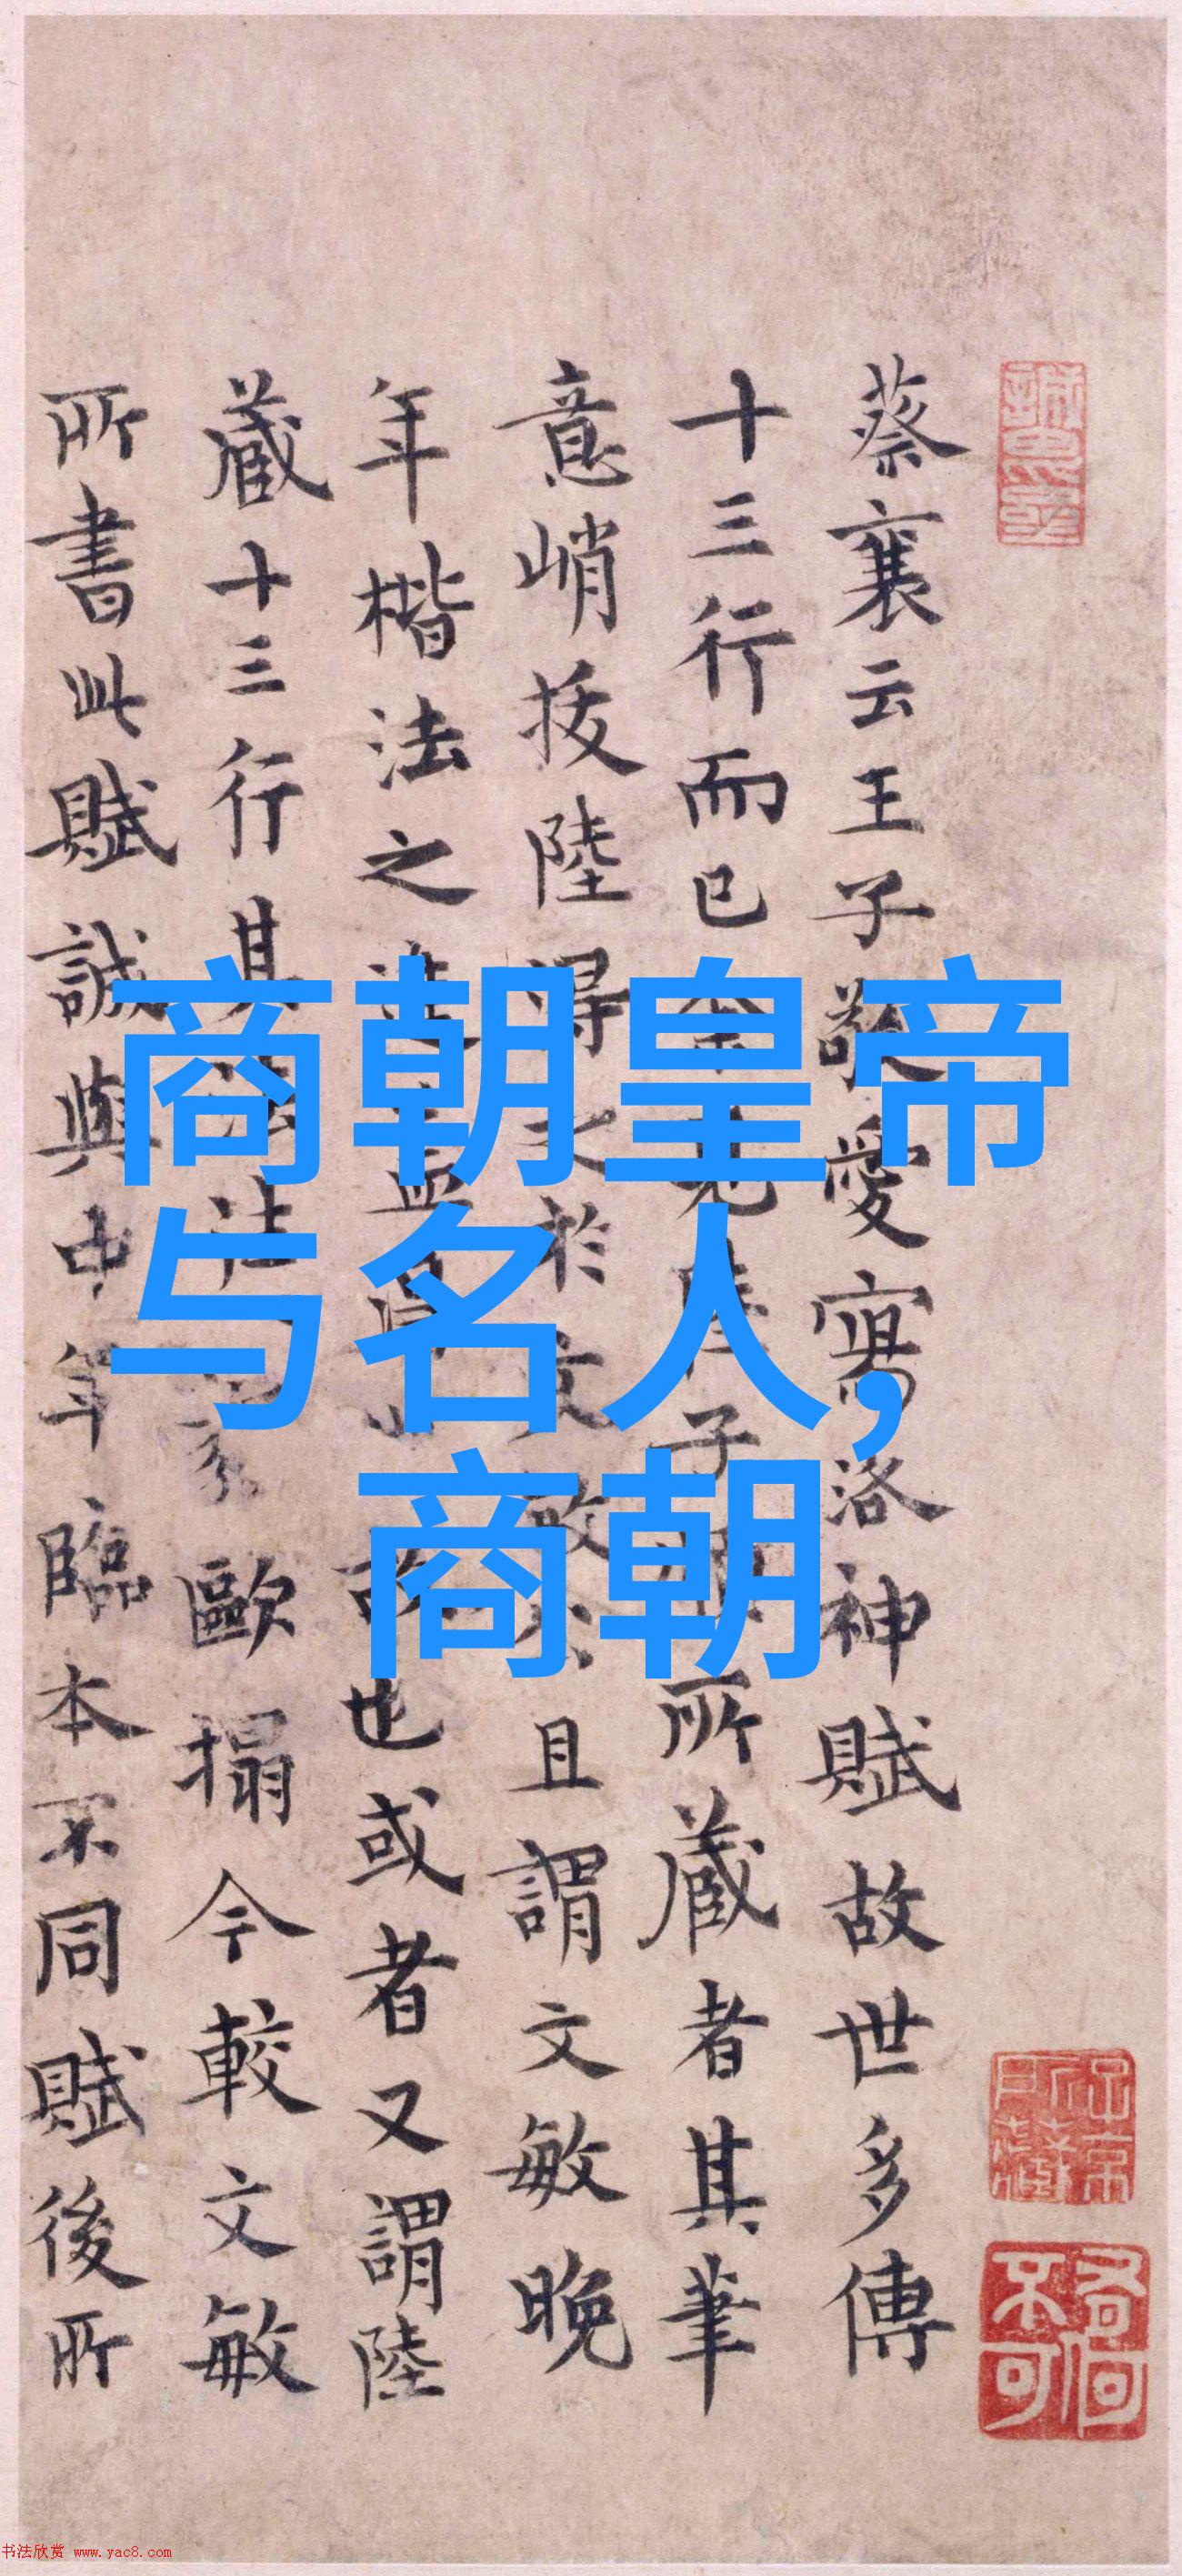 商朝皇帝
与名人，
商朝
蔡襄云王子敬愛寫洛神賦故世多傳
十三行而已余見陸子所藏者其筆
意峭拔陸得之於文敏且謂文敏晚
年楷法之進蓋得也或者又謂陸
藏十三行其法歐搨今較文敏
所書此賦誠與中年臨本不同賦後所
书法欣赏 www.yac8.com